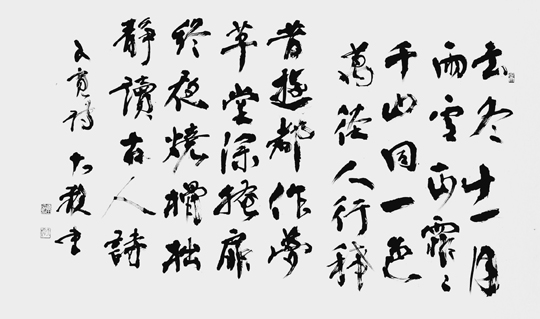 玄冬十一月
雨雪正霏〻
千山同一色
萬徑人行稀
昔遊都作夢
草堂深掩扉
終夜燒榾柮
靜讀古人詩
良寛詩 書